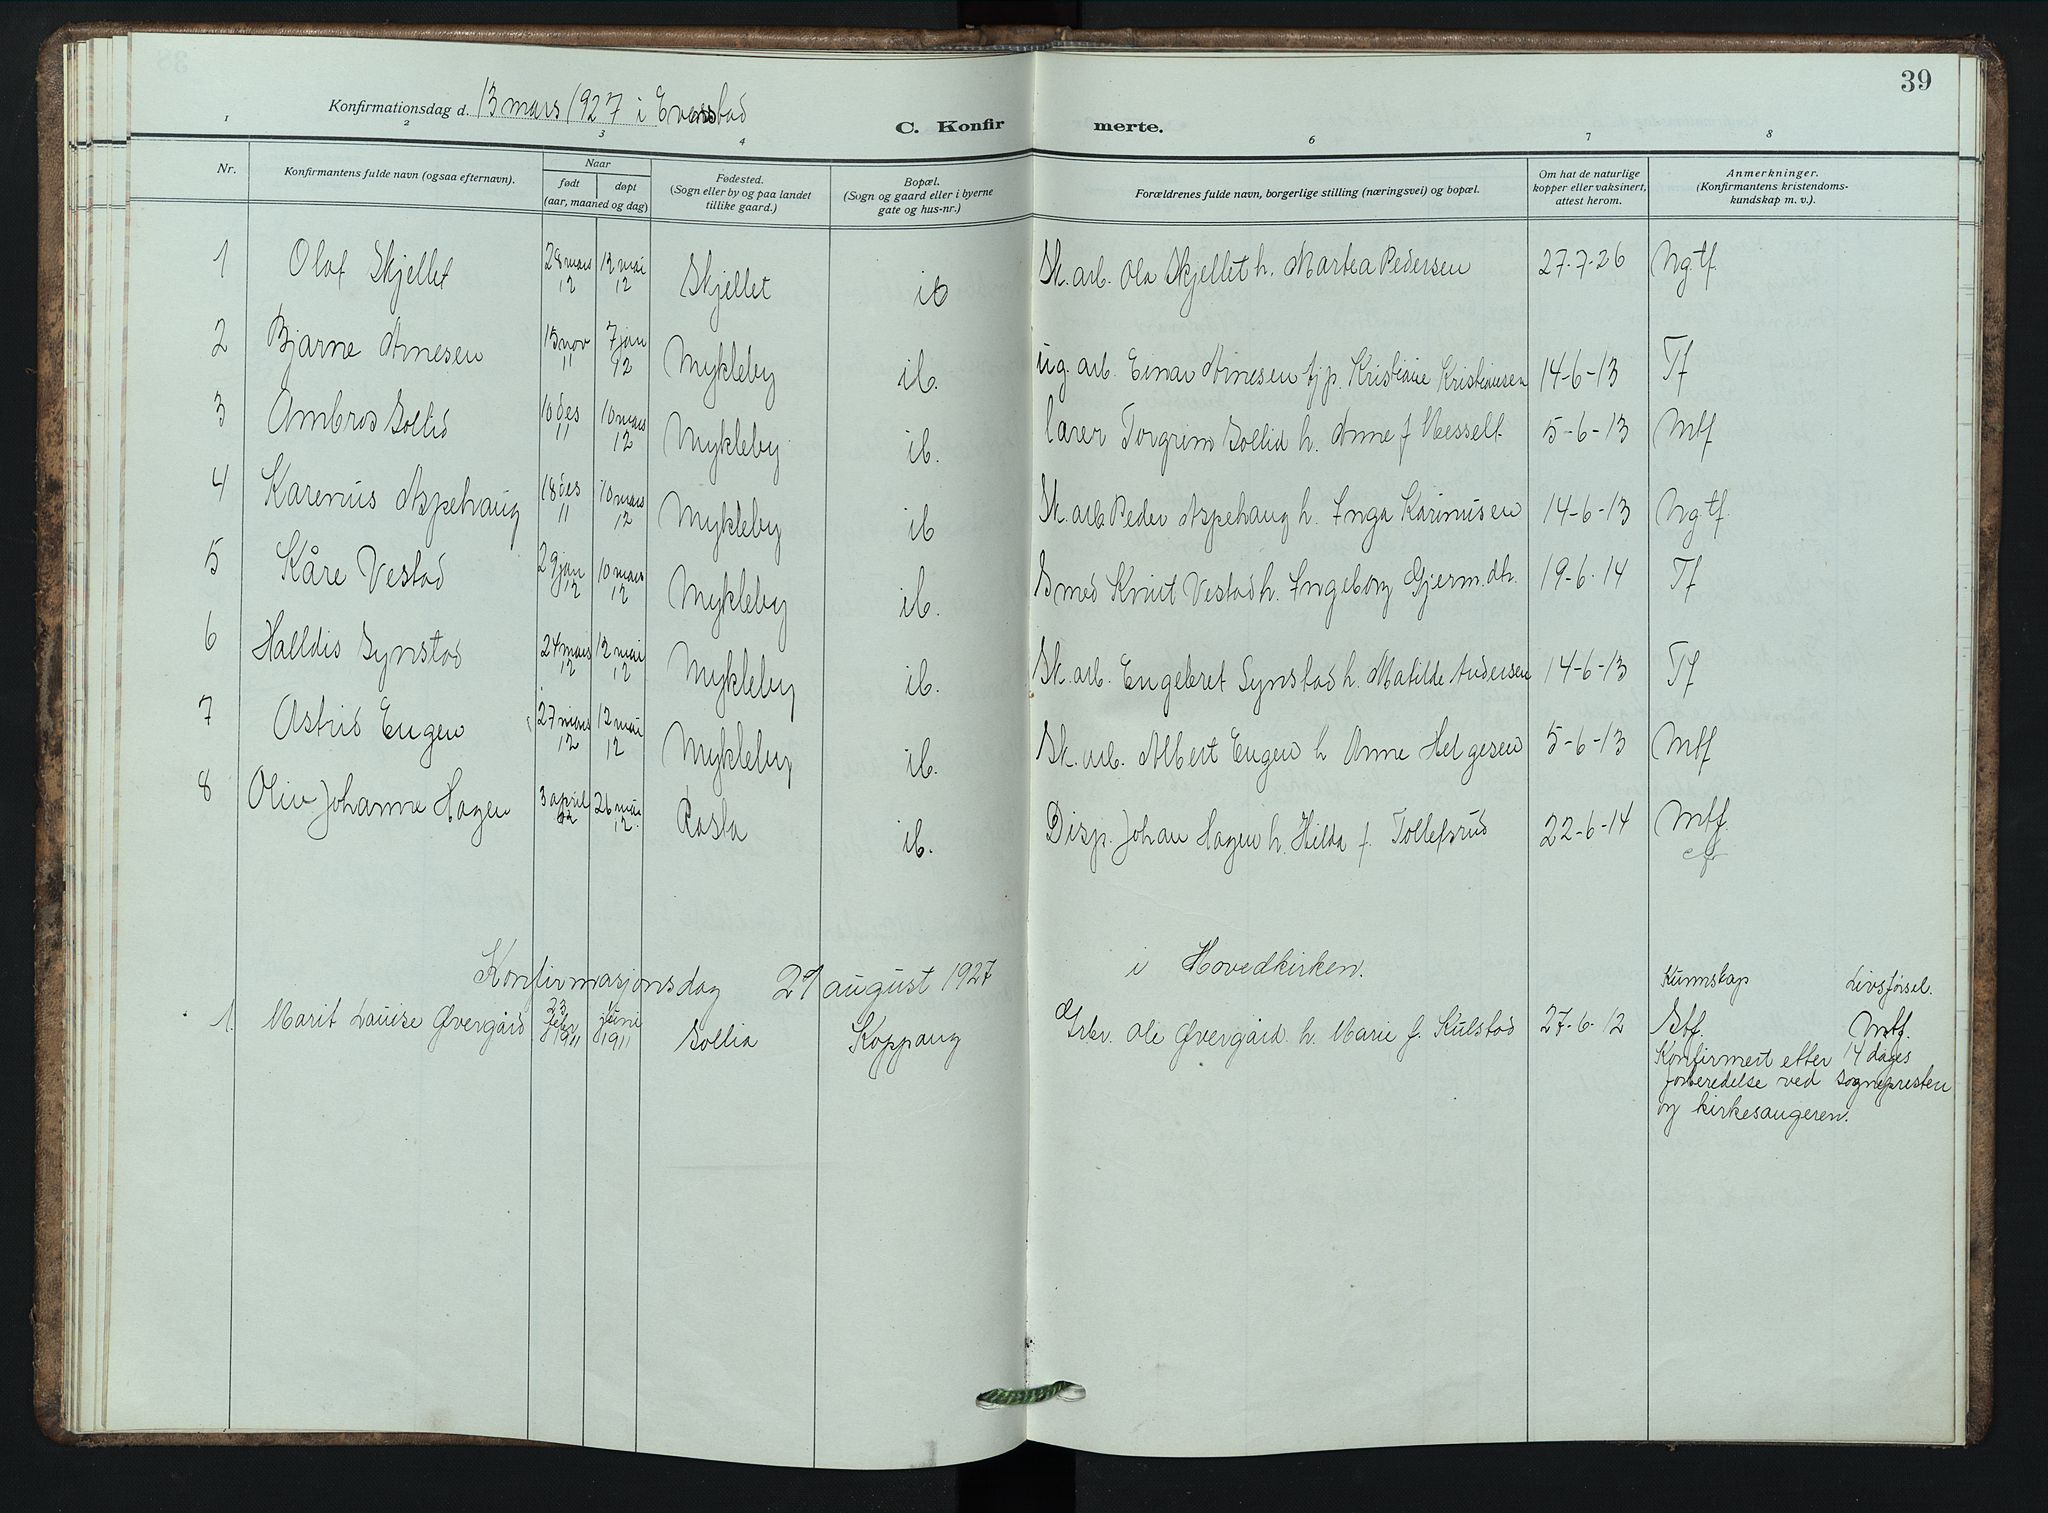 39
Konfirmationsdag d. 13 mars 1927 i Evenstad
C. Konfirmerte.
1 2 3 4 6 7 8
Nr.
Konfirmantens fulde navn (ogsaa efternavn).
Naar
født døpt
(aar, maaned og dag)
Fødested.
(Sogn eller by og paa landet
tillike gaard.)
Bopæl.
(Sogn og gaard eller i byerne
gate og hus-nr.)
Forældrenes fulde navn, borgerlige stilling (næringsvei) og bopæl.
Om hat de naturlige
kopper eller vaksinert,
attest herom.
Anmerkninger.
(Konfirmantens kristendoms-
kundskap m. v.).
1 Olaf Skjellet 28 mars 12 12 mai 12 Skjellet ib Sk. arb. Ola Skjellet h. Martea Pedersen 27-7-26 Ngtf.
2 Bjarne Arnesen 15 nov 11 7 jan 12 Mykleby ib. ug. arb. Einar Arnesen fjp. Kristiane Kristiansen 14-6-13 Tf
3 Ambros Sollid 10 des 11 10 mars 12 Mykleby ib. lærer Torgrim Sollid h. Anne f Messelt 5-6-13 Mtf
4 Karenius Aspehaug 18 des 11 10 mars 12 Mykleby ib Sk. arb Peder Aspehaug h. Inga Karinusen 14-6-13 Ngtf.
5 Kåre Vestad 29 jan 12 10 mars 12 Mykleby ib. Smed Knut Vestad h. Ingeborg Gjerm.dt. 19-6-14 Tf
6 Halldis Synstad 24 mars 12 12 mai 12 Mykleby ib. Sk. arb. Engebret Synstad h. Matilde Andersen 14-6-13 Tf
7 Astrid Engen 27 mars 12 12 mai 12 Mykleby ib. Sk. arb. Albert Engen h Anne Helgesen 5-6-13 Mtf
8 Oliv Johanne Hagen 3 april 12 26 mai 12. Rasta ib. Disp. Johan Hagen h. Hilda f. Tollefsrud 22-6-14 Mtf.
Konfirmasjonsdag 27 august 1927 i Hovedkirken.
Kunnskap Livsførsel.
1. Marit Louise Øvergård 23 febr 1911 juni 1911 Sollia Koppang Grbr. Ole Øvergård h. Marie f. Kulstad 27-6-12 Gtf. Mtf.
Konfirmert etter 14 dages
forberedelse ved sognepresten
og kirkesangeren.